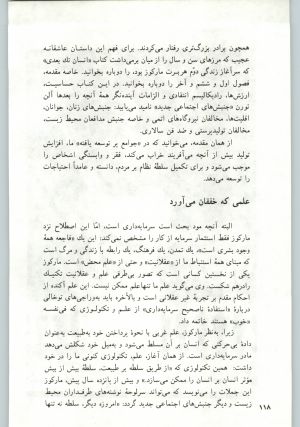 همچون برادر بزرگ‌تری رفتار می‌کردند. برای فهم این داستان عاشقانه
عجیب که مرزهای سن و سال را از میان برمی‌داشت کتاب «انسان تک بعدی»
که سرآغاز زندگی دوّم هربرت مارکوز بود، را دوباره بخوانید. خاصه مقدمه،
فصول اول و ششم و آخر را دوباره بخوانید. در این کتاب حساسیت،
ارزش‌ها، رادیکالیسم انتقادی و الزامات آینده‌نگر همهٔ آنچه را بعدها آلن
تورن «جنبش‌های اجتماعی جدید» نامید می‌یابید: جنبش‌های زنان، جوانان،
اقلیت‌ها، مخالفان نیروگاه‌های اتمی و خاصه جنبش مدافعان محیط زیست،
مخالفان تولیدپرستی و ضد فن سالاری.
از همان مقدمه، می‌خوانید که در «جوامع بر توسعه یافته» ما، افزایش
تولید بیش از آنچه می‌آفریند خراب می‌کند، فقر و وابستگی اشخاص را
موجب می‌شود و برای تکمیل سلطهٔ نظام بر مردم، دانسته و عامداً احتیاجات
را توسعه می‌دهد.
علمی که خفقان می‌آورد
البته آنچه مورد بحث است سرمایه‌داری است، امّا این اصطلاح نزد
مارکوز فقط استثمار سرمایه از کار را مشخص نمی‌کند: این یک «فاجعه همهٔ
وجود بشری است»، یک تمدن، یک فرهنگ، یک رابطه با زندگی و مرگ است
که مبنای همهٔ استنباط ما از «عقلانیت» و حتی از «علم محض» است. مارکوز
یکی از نخستین کسانی است که تصور بی‌طرفی علم و عقلانیت تکنیک
رادرهم شکست. وی می‌گوید علم ما تنها علم ممکن نیست. این علم آکنده از
احکام مقدم بر تجربهٔ غیر عقلانی است و بالاخره باید به‌وراجی‌های توخالی
دربارهٔ «استفادهٔ ناصحیح سرمایه‌داری» از علم و تکنولوژی که فی‌نفسه
«خوب» هستند خاتمه داد.
زیرا، به‌نظر مارکوز، علم غربی با نحوهٔ پرداختن خود به‌طبیعت به‌عنوان
مادهٔ بی‌حرکتی که انسان بر آن مسلط می‌شود و به‌میل خود شکلش می‌دهد
مادر سرمایه‌داری است. از همان آغاز، علم، تکنولوژی کنونی ما را در خود
داشت: همین تکنولوژی که «از طریق سلطه بر طبیعت، سلطهٔ بیش از پیش
مؤثر انسان بر انسان را ممکن می‌سازد.» و پیش از پانزده سال پیش، مارکوز
این جملات را می‌نویسد که می‌تواند سرلوحهٔ نوشته‌های طرفداران محیط
زیست و دیگر جنبش‌های اجتماعی جدید گردد: «امروزه دیگر، سلطه نه تنها
۱۱۸